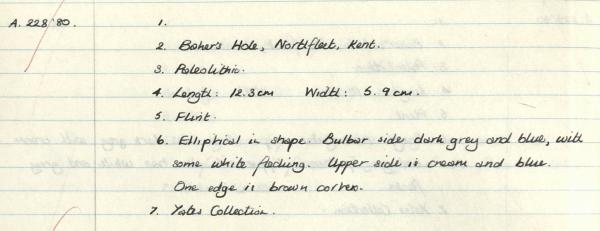 A. 228'80. 1.
2. Baker's Hole, Northfleet, Kent.
3. Paleolithic.
4. Length: 12.3cm Width: 5.9cm.
5. Flint.
6. Elliptical in shape. Bulbar side dark grey and blue, with
some white flecking. Upper side is cream and blue.
One edge is brown cortex.
7. Yates Collection.